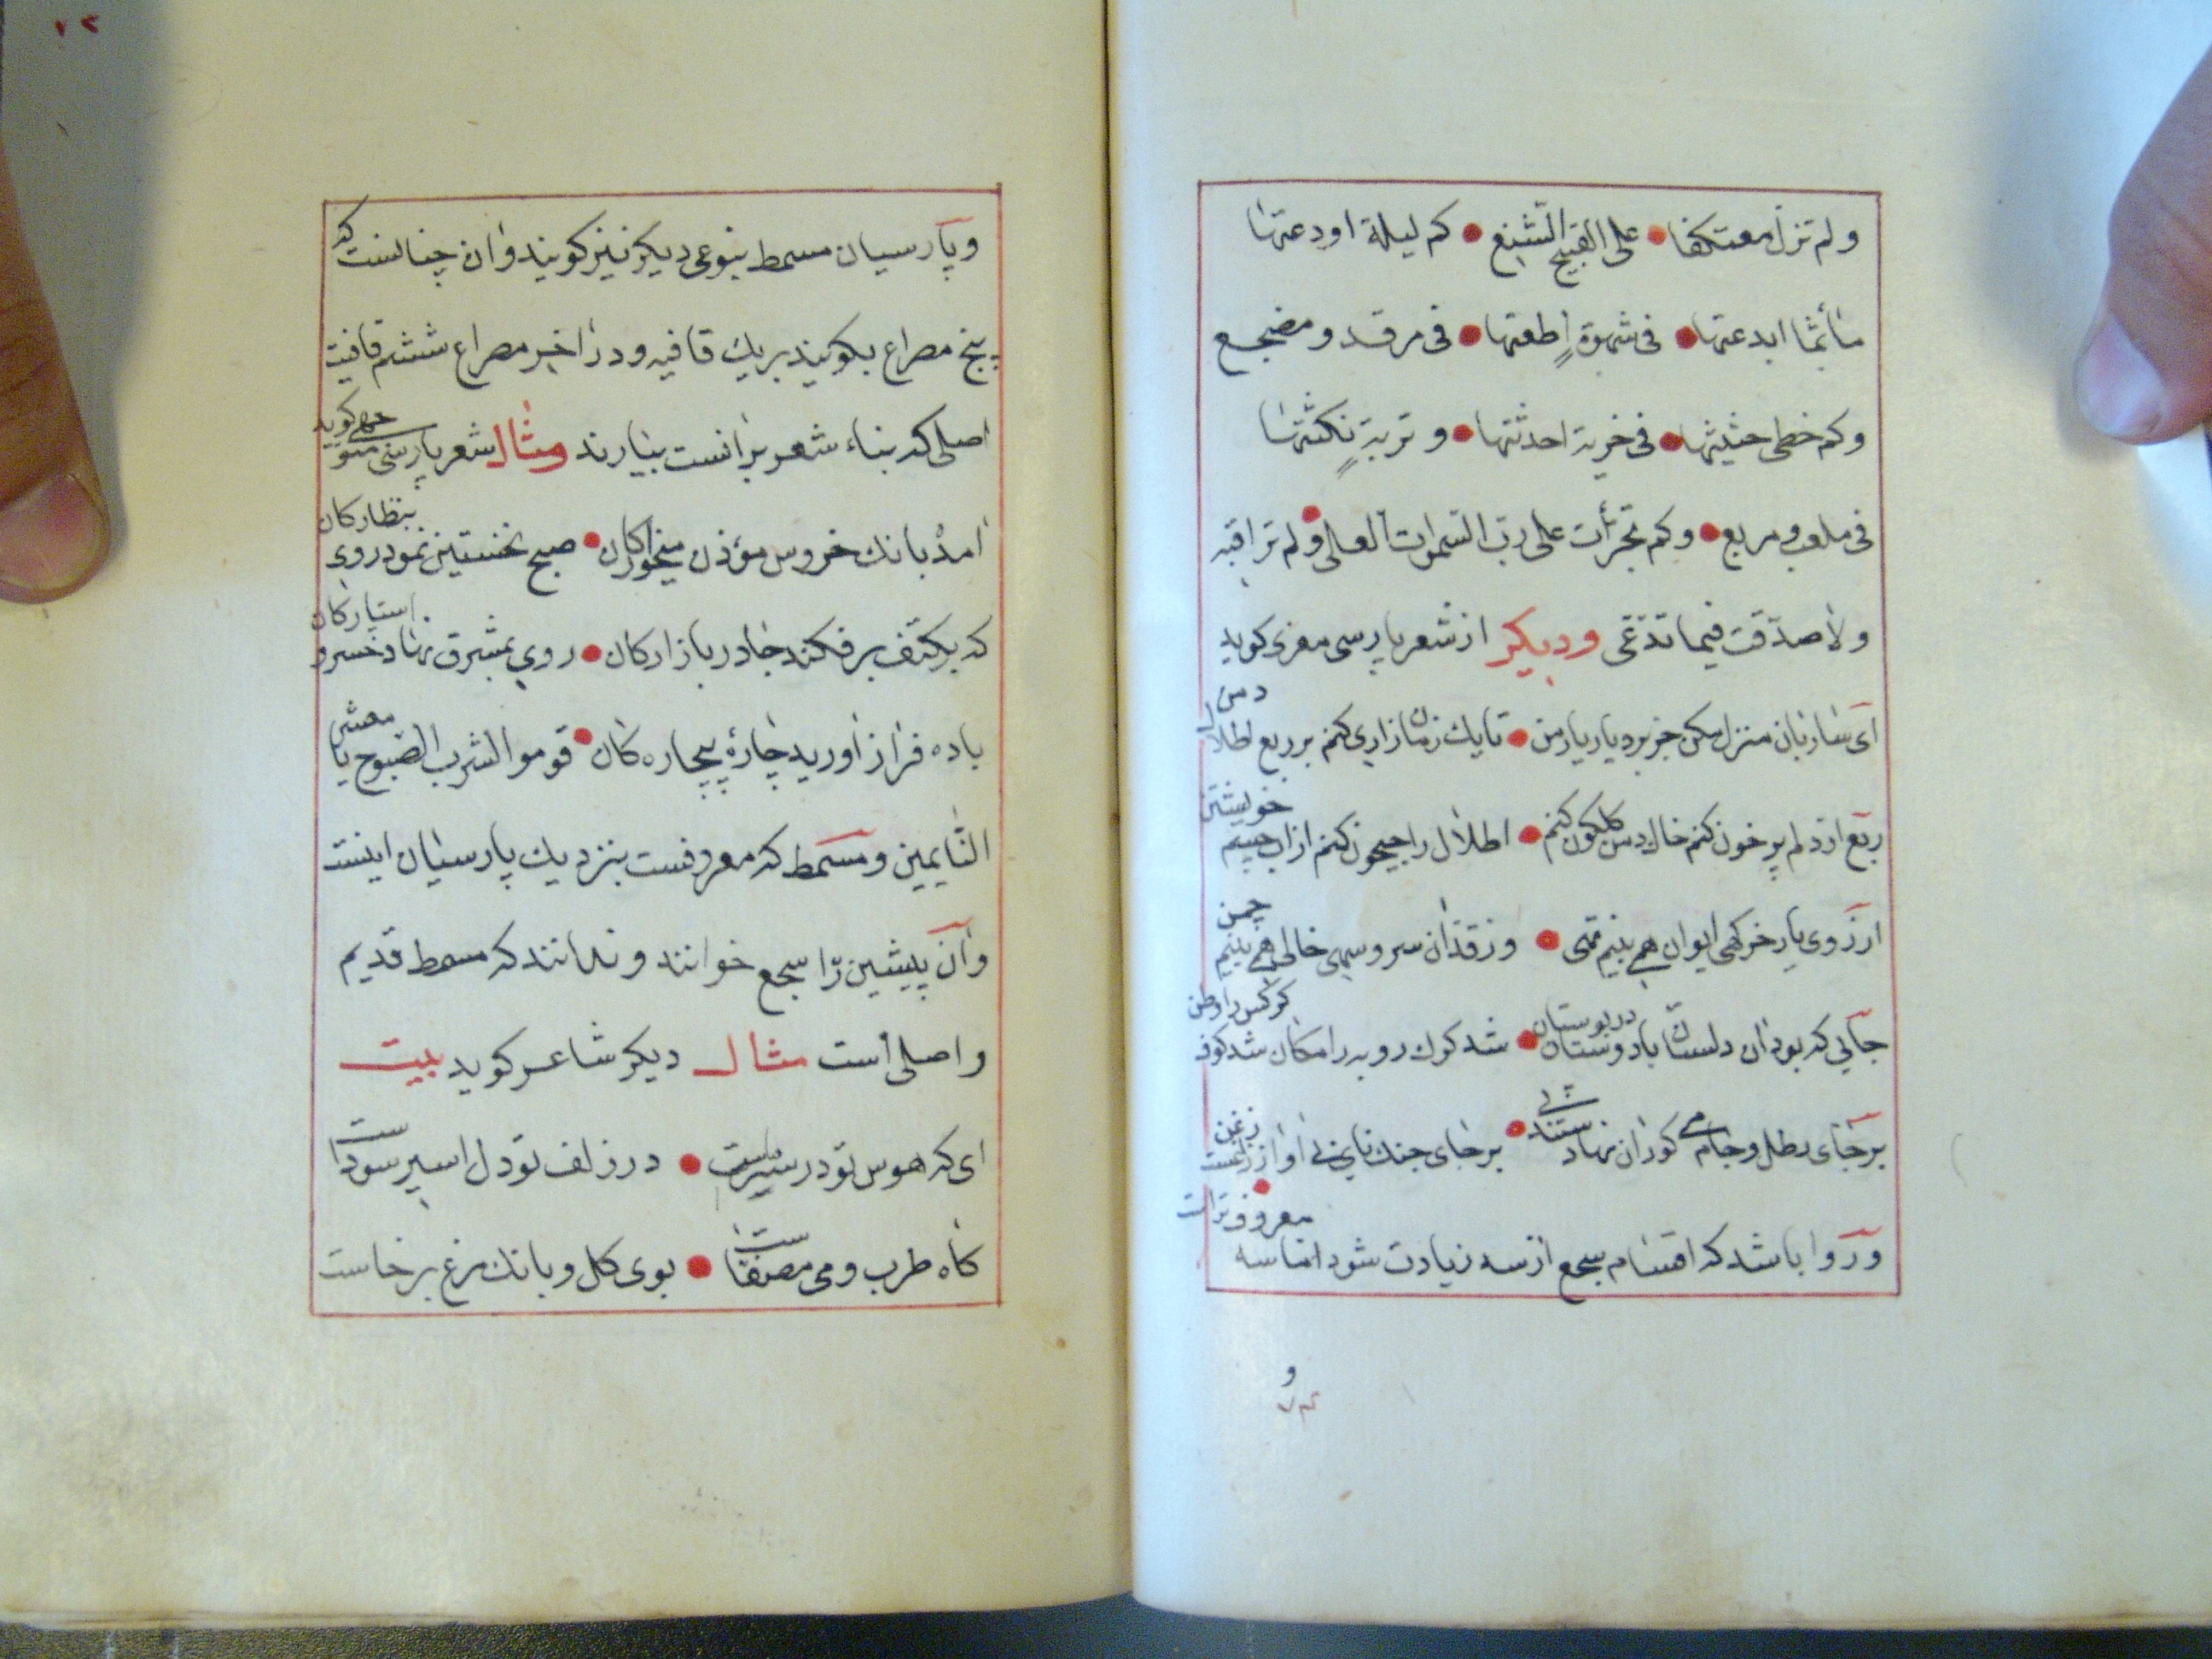 ولم تزل معتكفا على القبيح الشنع كم ليلة اودعتها
مأثما ابدعتها فى شهوة اطعتها فى مرقد و مضجع
وكم خطى حثيثها فى خزية احدثتها و تربة نكثتها
فى ملعب و مربع وكم تجرأت على رب السموات العلى ولم تراقبه
ولا صدقت فيما تدعى وديكر از شعر پارسى معزى كويد
اى ساربان منزل مكن جز بر ديار يار من تا يك زمان زارى كنم بر ربع اطلال دمن
ربع از دلم پر خون كنم خاك دمن كلكون كنم اطلال را جيحون كنم از اب چشم خويشتن
از روى يار خركهى ايوان همى بينم تهى وز قد ان سرو سهى خالى همى بينم چمن
جايى كه بود ان دلستان با دوستان در بوستان شد كرك و روبه را مكان شد كوف كركس را وطن
بر جاى رطل و جام مى كوران نهادستند پى بر جاى چنك ناى نى اواز زاغست زغن
وروا باشد كه اقسام سجع از سه زيادت شود اما سه معروف تراست
و
١٢
وپارسيان مسمط بنوعى ديكر نيز كويند وان چنانست كه
پنج مصراع بكويند بر يك قافيه ودر اخر مصراع ششم قافيت
اصلى كه بناء شعر بر انست بيارند مثال شعر پارسى منوچهرى كويد
امد بانك خروس مؤذن ميخواركان صبح نخستين نمود روى بنظاركان
كه بكتف بر فكند چادر بازاركان روى بمشرق نهاد خسرو استاركان
باده فراز اوريد چارۀ بيچاره كان قوموا لشرب الصبوح يا معشر
النايمين ومسمط كه معروفست بنزديك پارسيان اينست
وآن پيشين را سجع خوانند و ندانند كه مسمط قديم
واصلى است مثال ديكر شاعر كويد بيت
اى كه هوس تو در سر ماست در زلف تو دل اسير سوداست
كاه طرب و مى مصفاست بوى كل و بانك مرغ برخاست